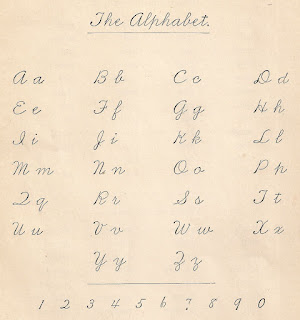 The Alphabet.
A a B b C c D d
E e F f G g H h
I i J j K k L l
M m N n O o P p
Q q R r S s T t
U u V v W w X x
Y y Z z
1 2 3 4 5 6 7 8 9 0